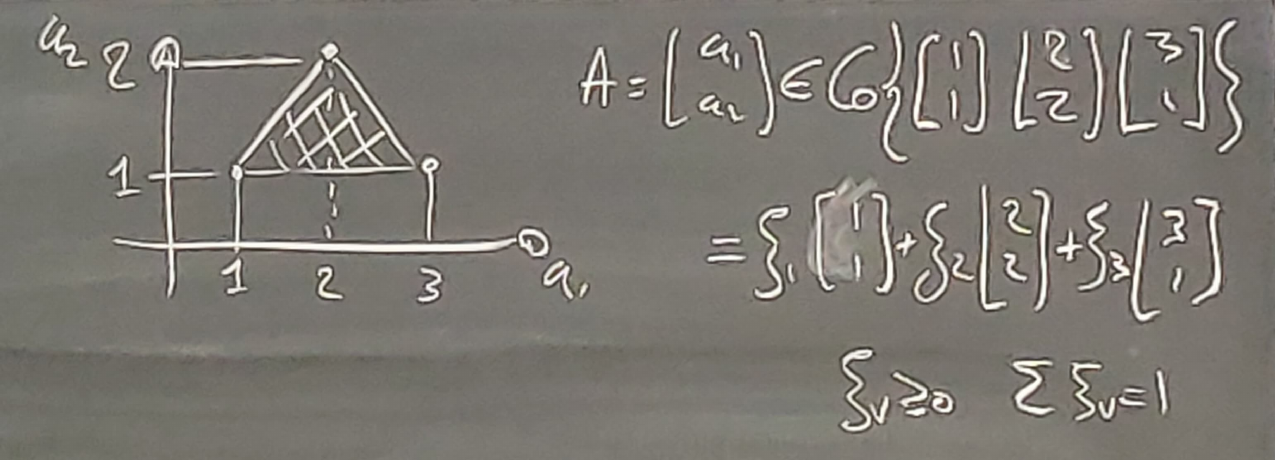 a₂ 2
1
1 2 3 a₁
A = [a₁ a₂] ∈ Co{[1 1] [2 2] [3 1]}
= ξ₁[1 1] + ξ₂[2 2] + ξ₃[3 1]
ξᵥ ≥ 0 Σ ξᵥ = 1